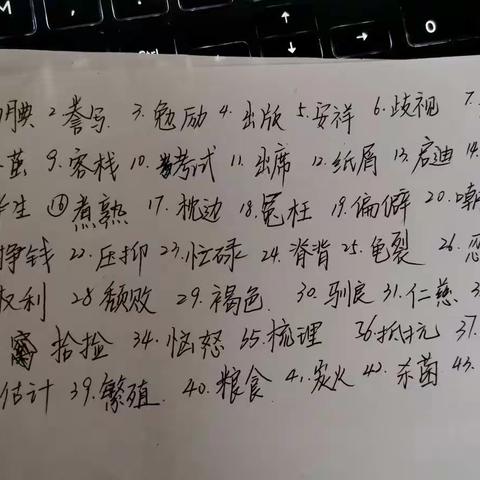 腆 2 誊写 3. 勉励 4. 出版 5. 安祥 6. 歧视 7.
茧 9. 客栈 10. 考试 11. 出席 12. 纸屑 13. 启迪 14.
生 16 煮熟 17. 枕边 18. 冤枉 19. 偏僻 20. 嘲
挣钱 22. 压抑 23. 忙碌 24. 脊背 25. 龟裂 26. 恋
权利 28 颓败 29. 褐色 30. 驯良 31. 仁慈
拾捡 34. 恼怒 35. 梳理 36. 抵抗 37.
估计 39. 繁殖 40. 粮食 41. 炭火 42. 杀菌 43.